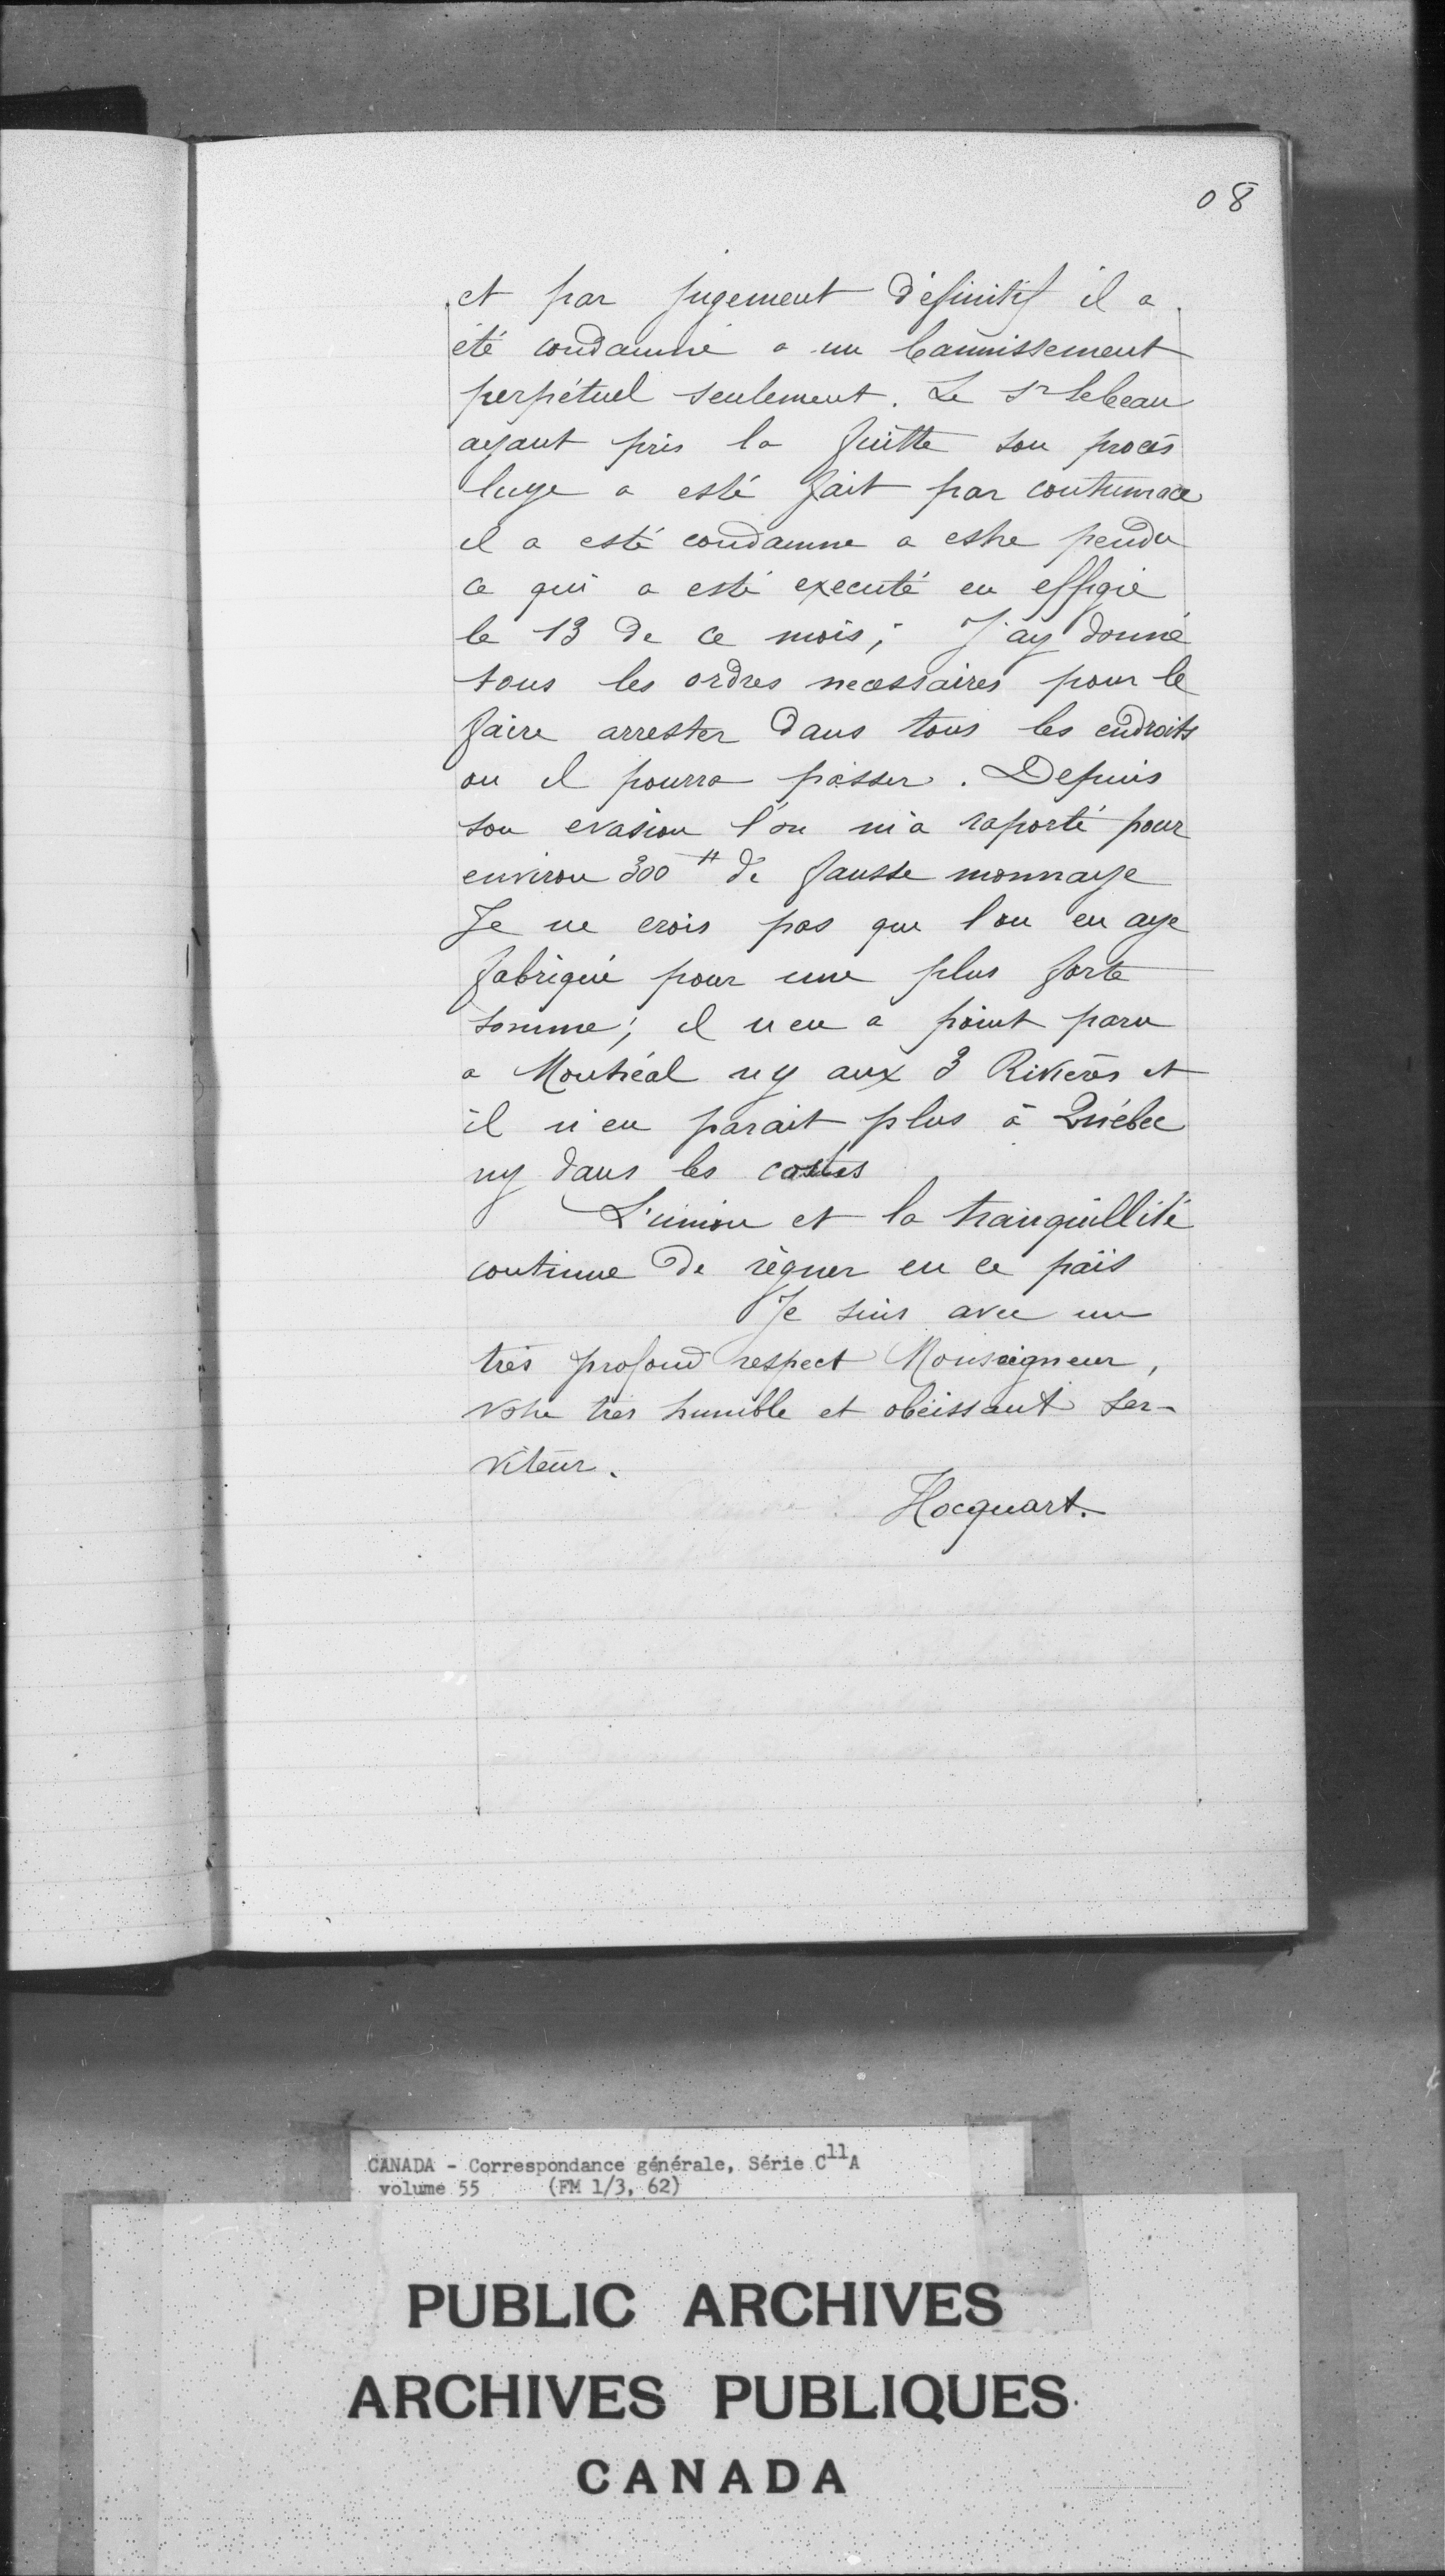 08
et par jugement définitif il a
été condamné a un bannissement
perpétuel seulement. Le Sr lebeau
ayant pris la fuitte son procés
luye a esté fait par contumace
il a esté condamne a estre pendu
ce qui a esté executé en effigie
le 13 de ce mois; J'ay donné
tous les ordres necessaires pour le
faire arrester dans tous les endroits
ou il pourra passer. Depuis
son evasion l'on m'a raporté pour
environ 300 ₶ de fausse monnaye
Je ne crois pas que l'on en aye
fabriqué pour une plus forte
somme; il n'en a point paru
a Montréal ny aux 3 Rivieres et
il n'en parait plus à Québec
ny dans les costes
L'union et la tranquillité
continue de règner en ce païs
Je suis avec un
très profond respect Monseigneur,
votre tres humble et obéissant ser-
viteur.
Hocquart.
CANADA - Correspondance générale, Série C11A
volume 55 (FM 1/3, 62)
PUBLIC ARCHIVES
ARCHIVES PUBLIQUES
CANADA